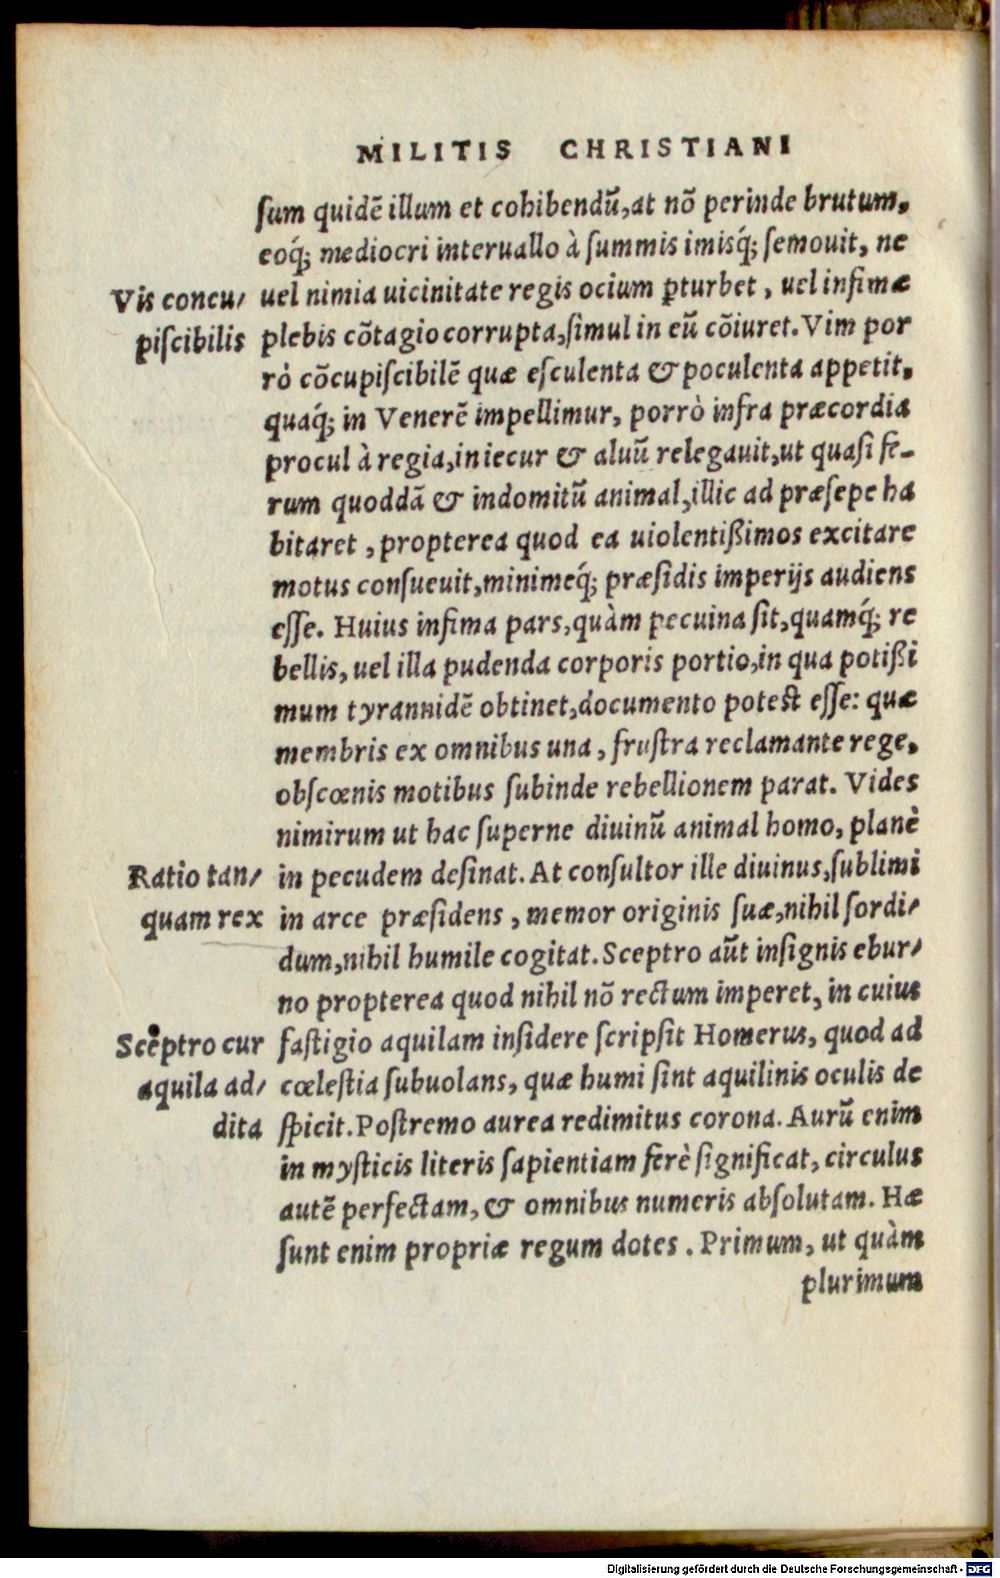 MILITIS CHRISTIANI
ſum quidē illum et cohibendū, at nō perinde brutum,
eoq́; mediocri interuallo à ſummis imisq́; ſemouit, ne
Vis concu/
uel nimia uicinitate regis ocium ꝑturbet, uel infimæ
piſcibilis
plebis cōtagio corrupta, ſimul in eū cōiuret. Vim por
rò cōcupiſcibilē quæ eſculenta & poculenta appetit,
quaq́; in Venerē impellimur, porrò infra præcordia
procul à regia, in iecur & aluū relegauit, ut quaſi fe-
rum quoddā & indomitū animal, illic ad præſepe ha
bitaret, propterea quod ea uiolentißimos excitare
motus conſueuit, minimeq́; præſidis imperijs audiens
eſſe. Huius infima pars, quàm pecuina ſit, quamq́; re
bellis, uel illa pudenda corporis portio, in qua potißi
mum tyrannidē obtinet, documento poteſt eſſe: quæ
membris ex omnibus una, fruſtra reclamante rege,
obſcœnis motibus ſubinde rebellionem parat. Vides
nimirum ut hac ſuperne diuinū animal homo, planè
Ratio tan/
in pecudem deſinat. At conſultor ille diuinus, ſublimi
quam rex
in arce præſidens, memor originis ſuæ, nihil ſordi/
dum, nihil humile cogitat. Sceptro aūt inſignis ebur/
no propterea quod nihil nō rectum imperet, in cuius
Sceptro cur
faſtigio aquilam inſidere ſcripſit Homerus, quod ad
aquila ad/
cœleſtia ſubuolans, quæ humi ſint aquilinis oculis de
dita
ſpicit. Poſtremo aurea redimitus corona. Aurū enim
in myſticis literis ſapientiam ferè ſignificat, circulus
autē perfectam, & omnibus numeris abſolutam. Hæ
ſunt enim propriæ regum dotes. Primum, ut quàm
plurimum
Digitalisierung gefördert durch die Deutsche Forschungsgemeinschaft - DFG